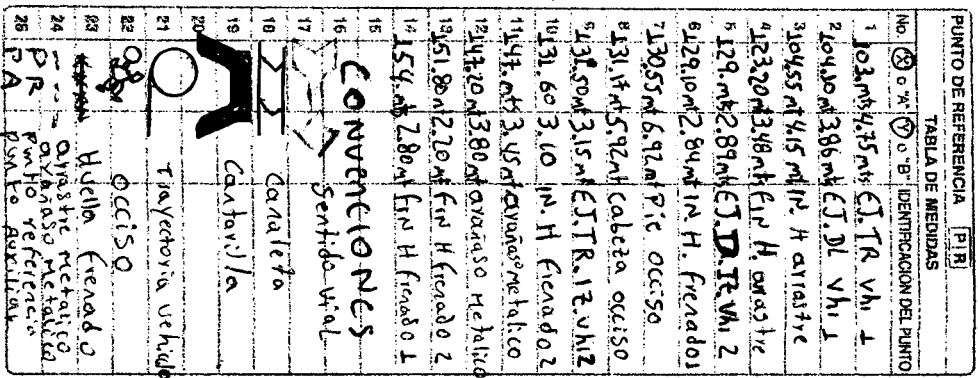 PUNTO DE REFERENCIA PR
TABLA DE MEDIDAS
No. X o "A" Y o "B" IDENTIFICACION DEL PUNTO
1 102.mts 4.75mts EJ.TR vhi 1
2 104.10mt 3.86mts EJ.DL vhi 1
3 104.55mt 4.15mt IN. H arrastre
4 123.20mt 3.48mt FIN H. arrastre
5 129.mts 2.89mts EJ.D.IZ vhi 2
6 129.10mt 2.84mt IN H. frenado 1
7 130.55mt 6.92mt Pie occiso
8 131.17mt 5.92mt cabeza occiso
9 131.50mt 3.15mt EJ.TR.IZ.vhi2
10 131.60 3.10 IN. H frenado 2
11 147.mts 3.45mt arañaso metalico
12 147.20mt 3.80mt arañaso Metalico
13 151.80mt 2.20mt FIN H frenado 2
14 154.mts 2.80mt FIN H frenado 1
15
16 CONVENCIONES
17 Sentido vial
18 Canaleta
19 Cantarilla
20
21 Trayectoria vehiculo
22 OCCISO
23 Huella frenado
24 arrastre metalico
arañaso Metalico
25 PR Punto referencia
PA Punto Auxiliar